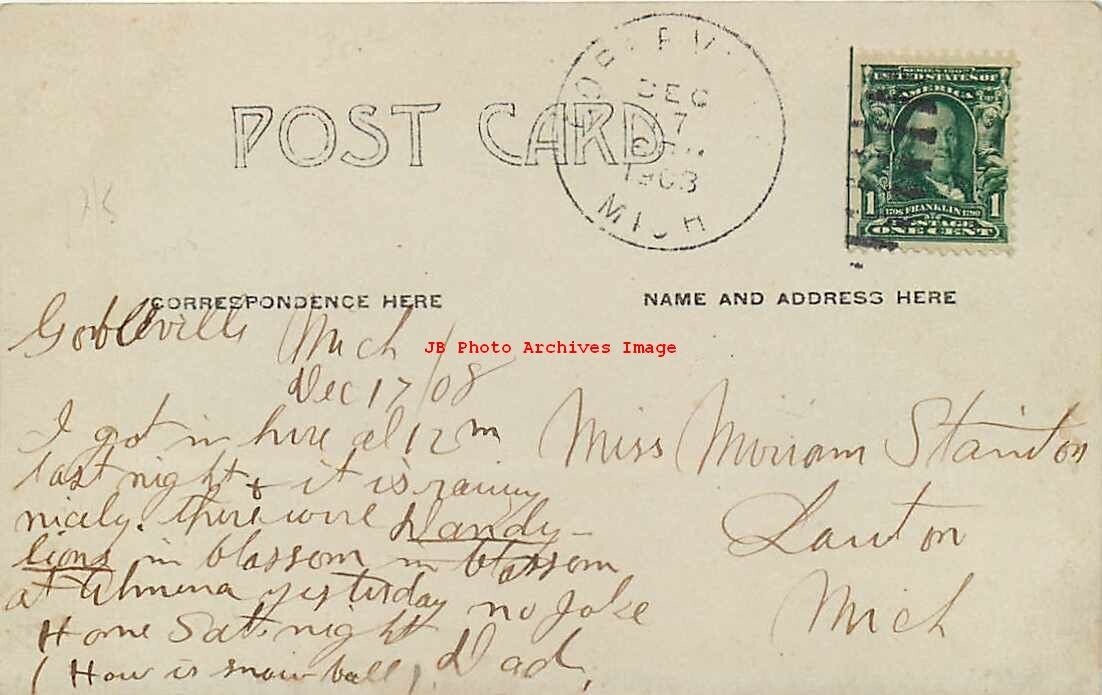 GOBLEVI
DEC
17
6 PM
1908
MICH
SERIES 1902
UNITED STATES OF
AMERICA
1 1706 FRANKLIN 1790 1
POSTAGE
ONE CENT
POST CARD
CORRESPONDENCE HERE
NAME AND ADDRESS HERE
JB Photo Archives Image
Gobleville Mich
Dec 17/08
I got in here at 12 m
last night & it is rainy
nicely. there were Dandy-
lions in blossom in blossom
at Almena yesterday no Joke
Home Sat. night
Dad,
(How is snow ball)
Miss Miriam Stainton
Lawton
Mich